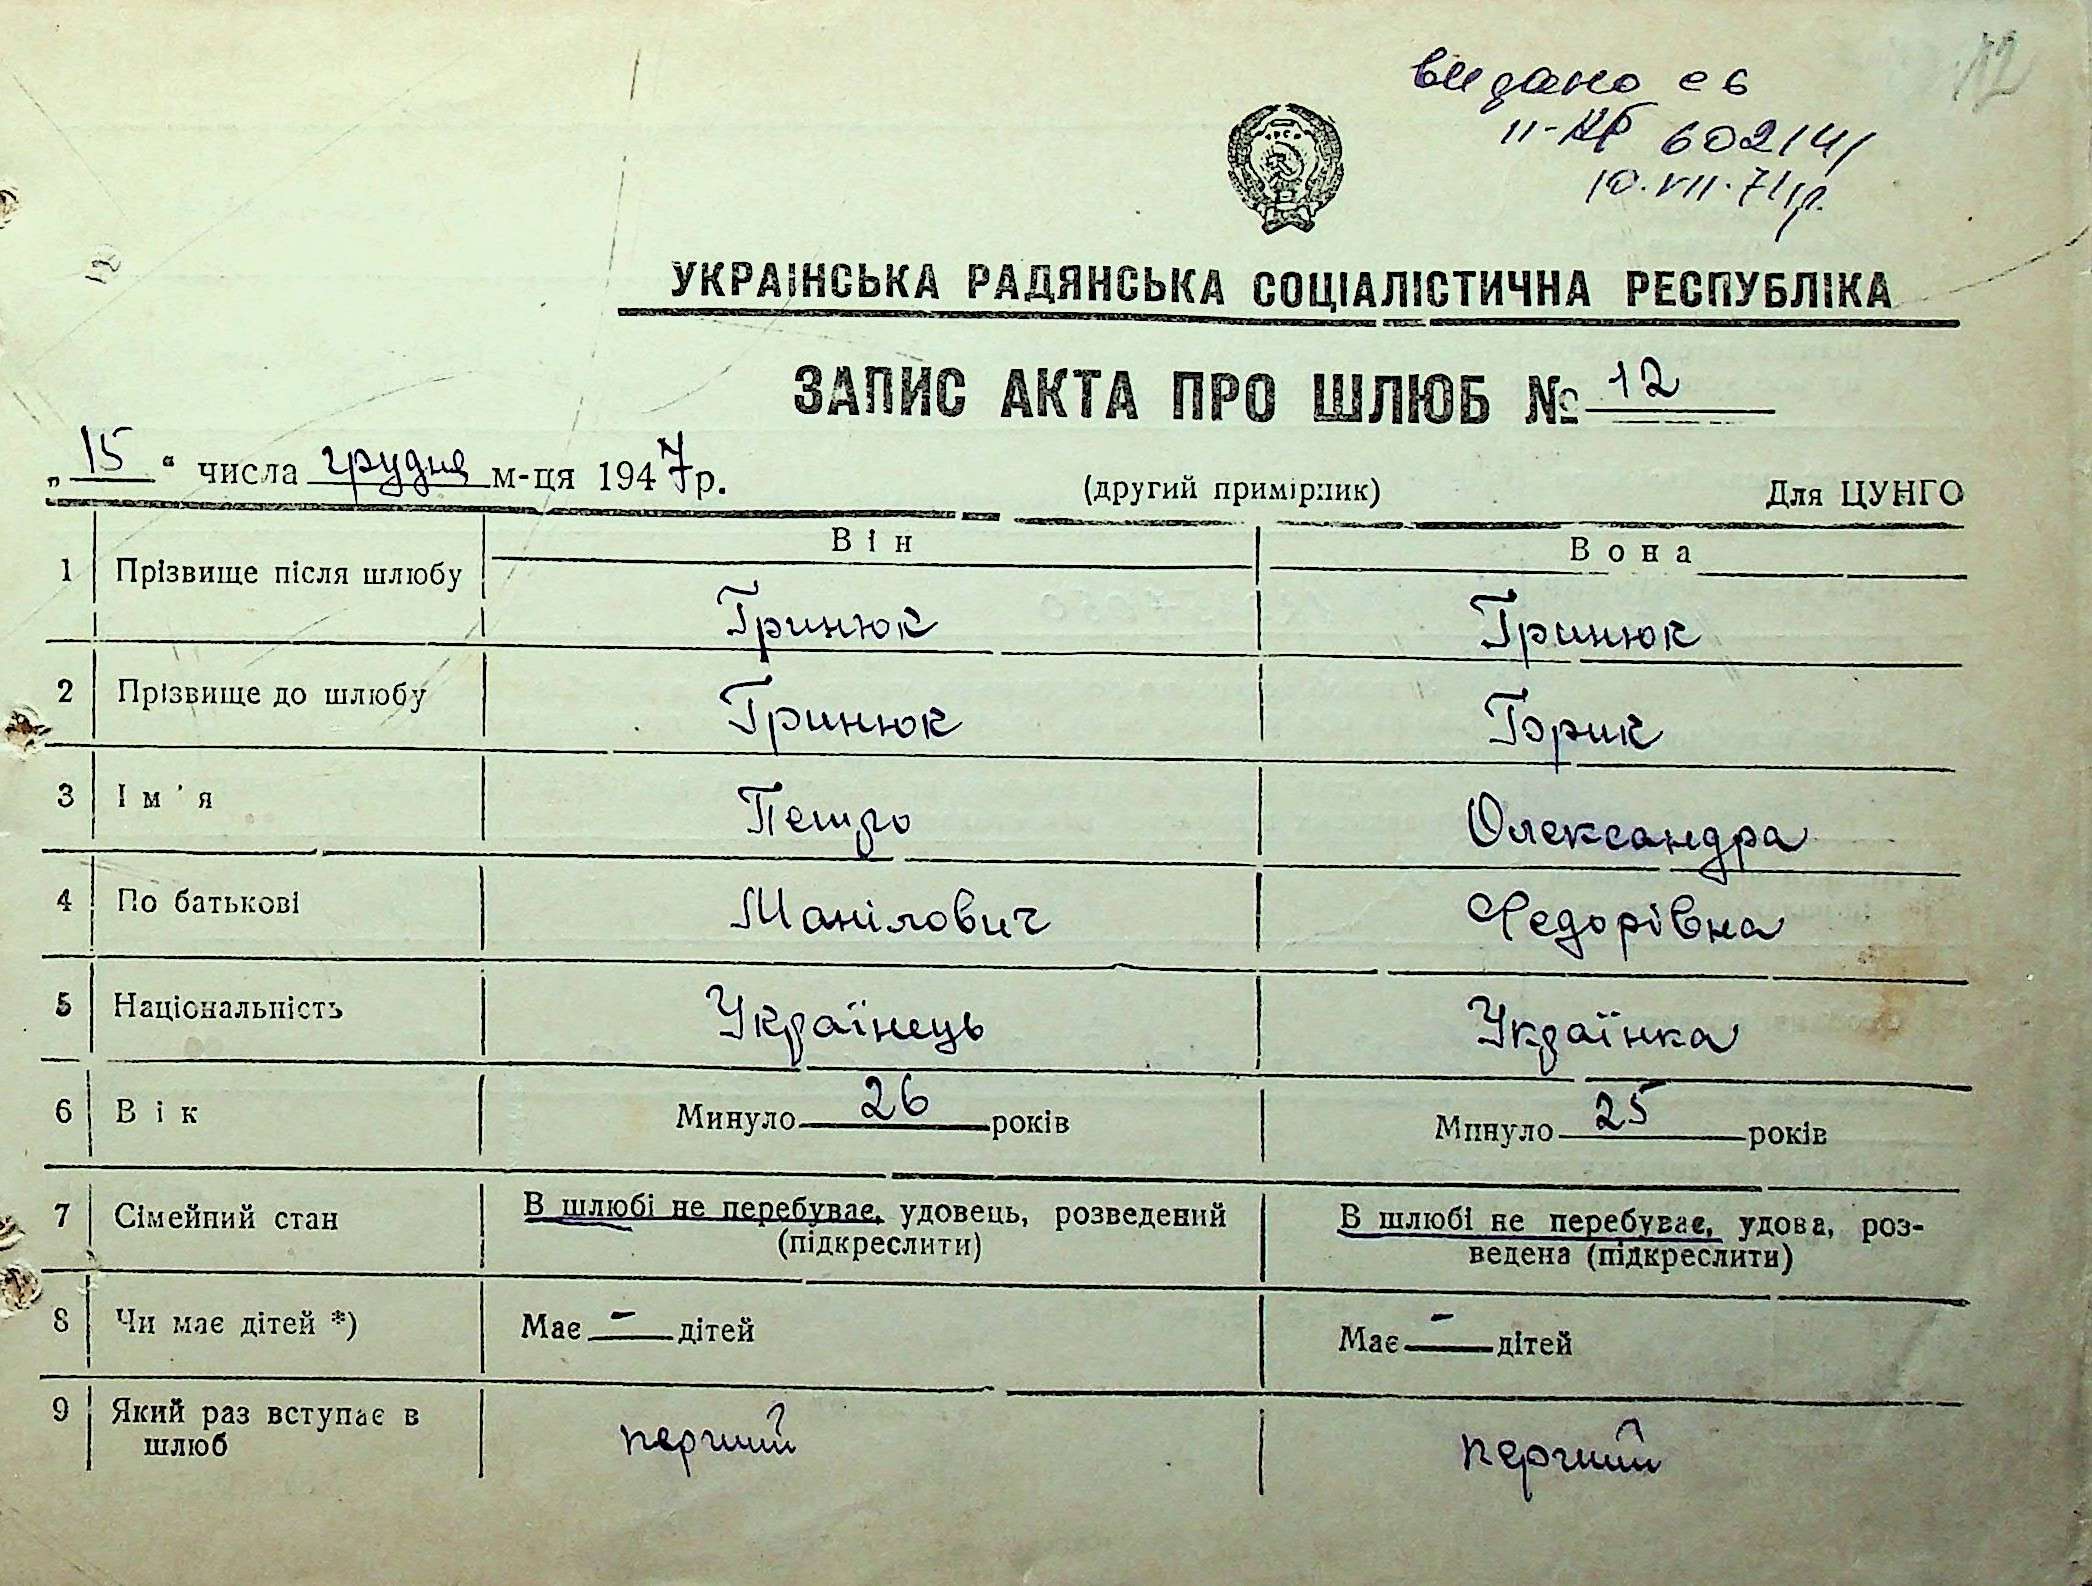 12
видано св
II-АБ 602141
10.VII.71р.
УКРАЇНСЬКА РАДЯНСЬКА СОЦІАЛІСТИЧНА РЕСПУБЛІКА
12
ЗАПИС АКТА ПРО ШЛЮБ № 12
„15“ числа грудня м-ця 1947 р. (другий примірник) Для ЦУНГО
Він Вона
1 Прізвище після шлюбу Гринюк Гринюк
2 Прізвище до шлюбу Гринюк Горик
3 Ім'я Петро Олександра
4 По батькові Манілович Федорівна
5 Національність Українець Українка
6 Вік Минуло 26 років Минуло 25 років
7 Сімейний стан В шлюбі не перебуває, удовець, розведений В шлюбі не перебуває, удова, роз-
(підкреслити) ведена (підкреслити)
8 Чи має дітей *) Має - дітей Має - дітей
9 Який раз вступає в перший перший
шлюб